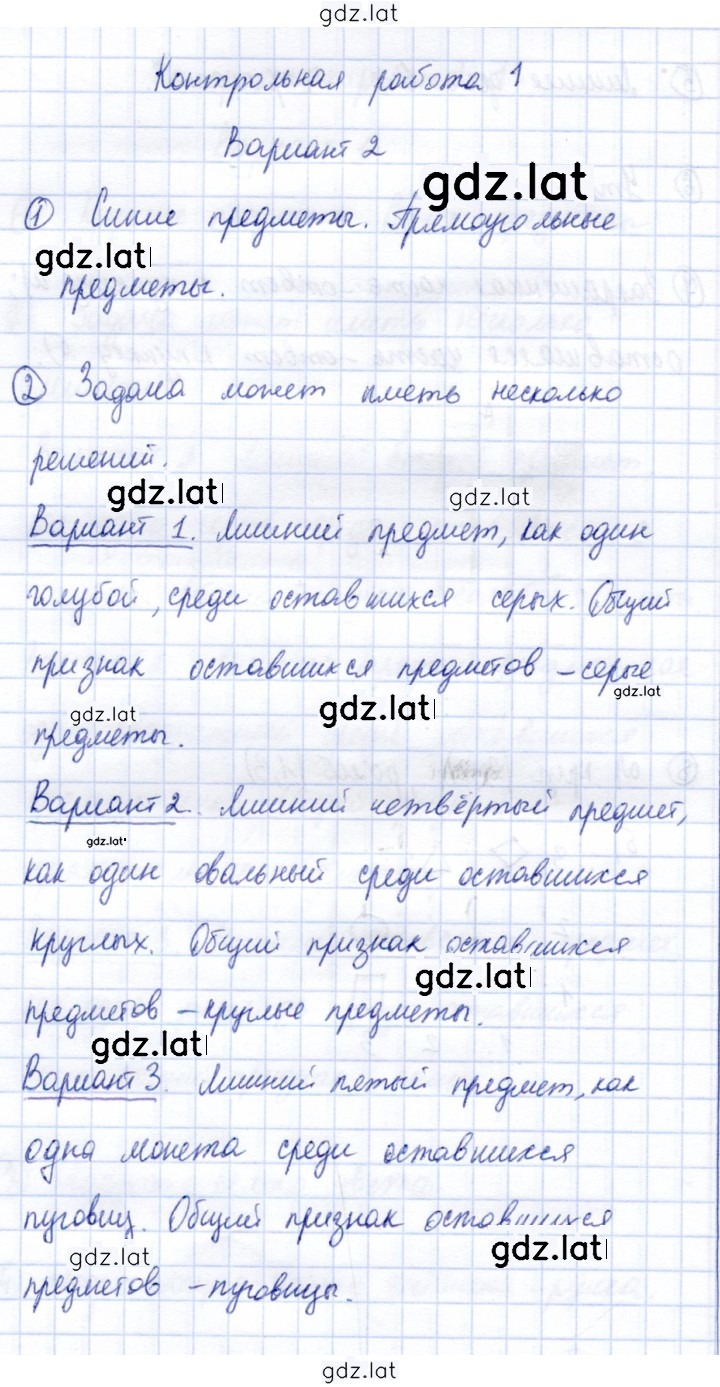 gdz.lat
Контрольная работа 1
Вариант 2
gdz.lat
① Синие предметы. Прямоугольные
gdz.lat
предметы.
② Задача может иметь несколько
решений.
gdz.lat
gdz.lat
Вариант 1. Лишний предмет, как один
голубой, среди оставшихся серых. Общий
признак оставшихся предметов – серые
gdz.lat
gdz.lat
gdz.lat
предметы.
Вариант 2. Лишний четвёртый предмет,
gdz.lat
как один овальный среди оставшихся
круглых. Общий признак оставшихся
gdz.lat
предметов – круглые предметы.
gdz.lat
Вариант 3. Лишний пятый предмет, как
одна монета среди оставшихся
пуговиц. Общий признак оставшихся
gdz.lat
gdz.lat
предметов – пуговицы.
gdz.lat